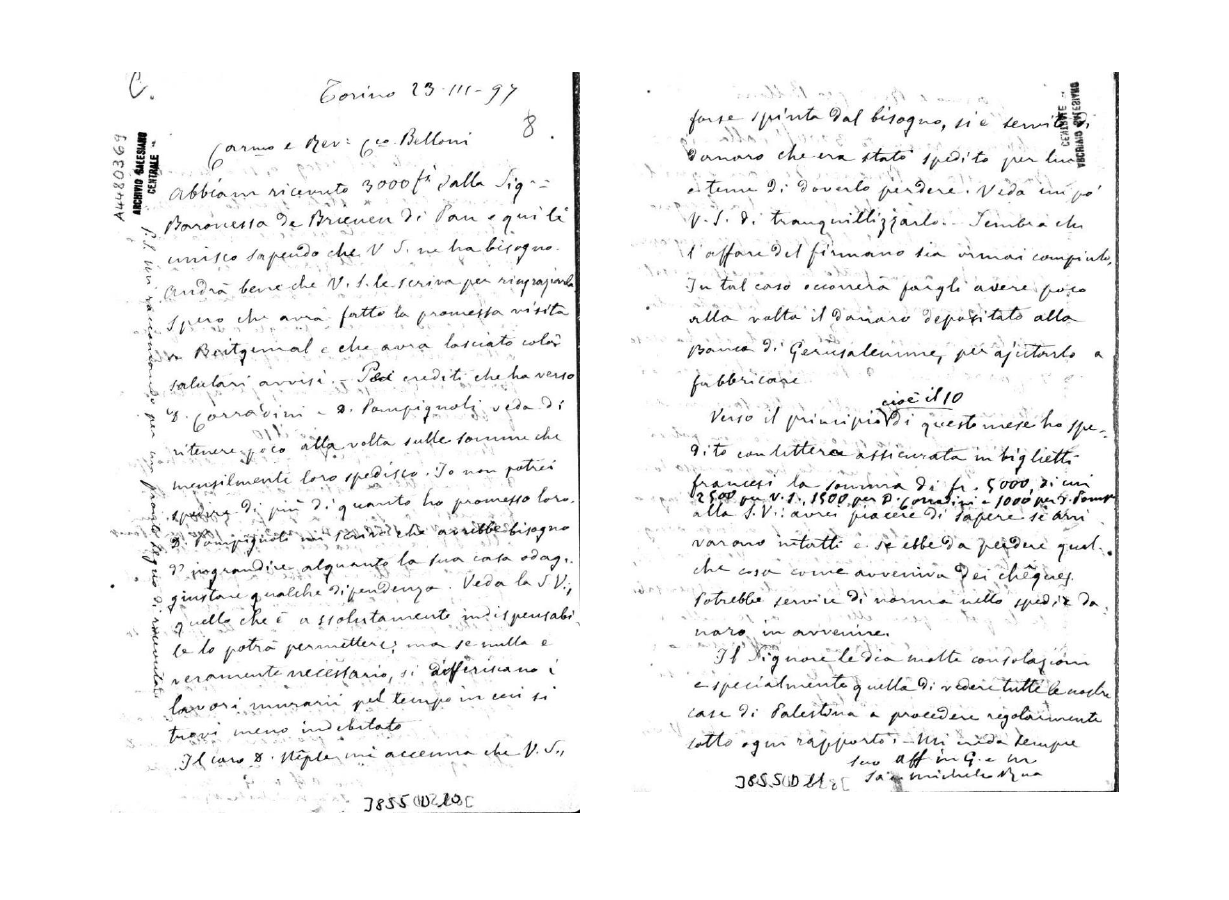 C.
Torino 23-III-97
8.
Carmo e Rev: Cco. Belloni
Abbiam ricevuto 3000 fr dalla Sig:
Baronessa de Brienen di Pau e qui li
unisco sapendo che V S. ne ha bisogno.
Andrà bene che V. S. le scriva per ringraziarla
Spero che avrà fatto la promessa visita
a Beitgemal e che avrà lasciato colà
salutari avvisi. - Pei crediti che ha verso
D. Corradini e D. Pampignoli veda di
ritenere poco alla volta sulle somme che
mensilmente loro spedisco. Io non potrei
spedire di più di quanto ho promesso loro.
D. Pampignoli mi scrive che avrebbe bisogno
d'ingrandire alquanto la sua casa od ag-
giustare qualche dipendenza. Veda la S.V.,
quello che è assolutamente indispensabi-
le lo potrà permettere; ma se nulla è
veramente necessario, si differiscano i
lavori murari pel tempo in cui si
trovi meno indebitato
Il caro D. meple mi accenna che V. S.,
P.S. un raccomando per un pronto segno di
A4480369
ARCHIVIO SALESIANO
CENTRALE
3855 D 10
forse spinta dal bisogno, si è servito di
danaro che era stato spedito per lui
e teme di doverlo perdere. Veda un pò
V. S. di tranquillizzarlo... Sembra che
l'affare del firmano sia ormai compiuto,
In tal caso occorrerà fargli avere poco
alla volta il danaro depositato alla
Banca di Gerusalemme, per ajutarlo a
fabbricare.
cioè il 10
Verso il principio di questo mese ho spe-
dito con lettera assicurata in biglietti
francesi la somma di fr. 5000 di cui
2500 per V. S., 1500 per D. Corradini e 1000 per D. Pamp
alla S.V.: avrei piacere di sapere se arri
varono intatti e se ebbe da perdere qual-
che cosa come avveniva dei chèques.
Potrebbe servire di norma nello spedir da-
naro in avvenire.
Il Signore le dia molte consolazioni
e specialmente quella di vedere tutte le nostre
case di Palestina a procedere regolarmente
sotto ogni rapporto: - Mi creda sempre
suo aff in G. e M
Sac. Michele Rua
3855 D 11